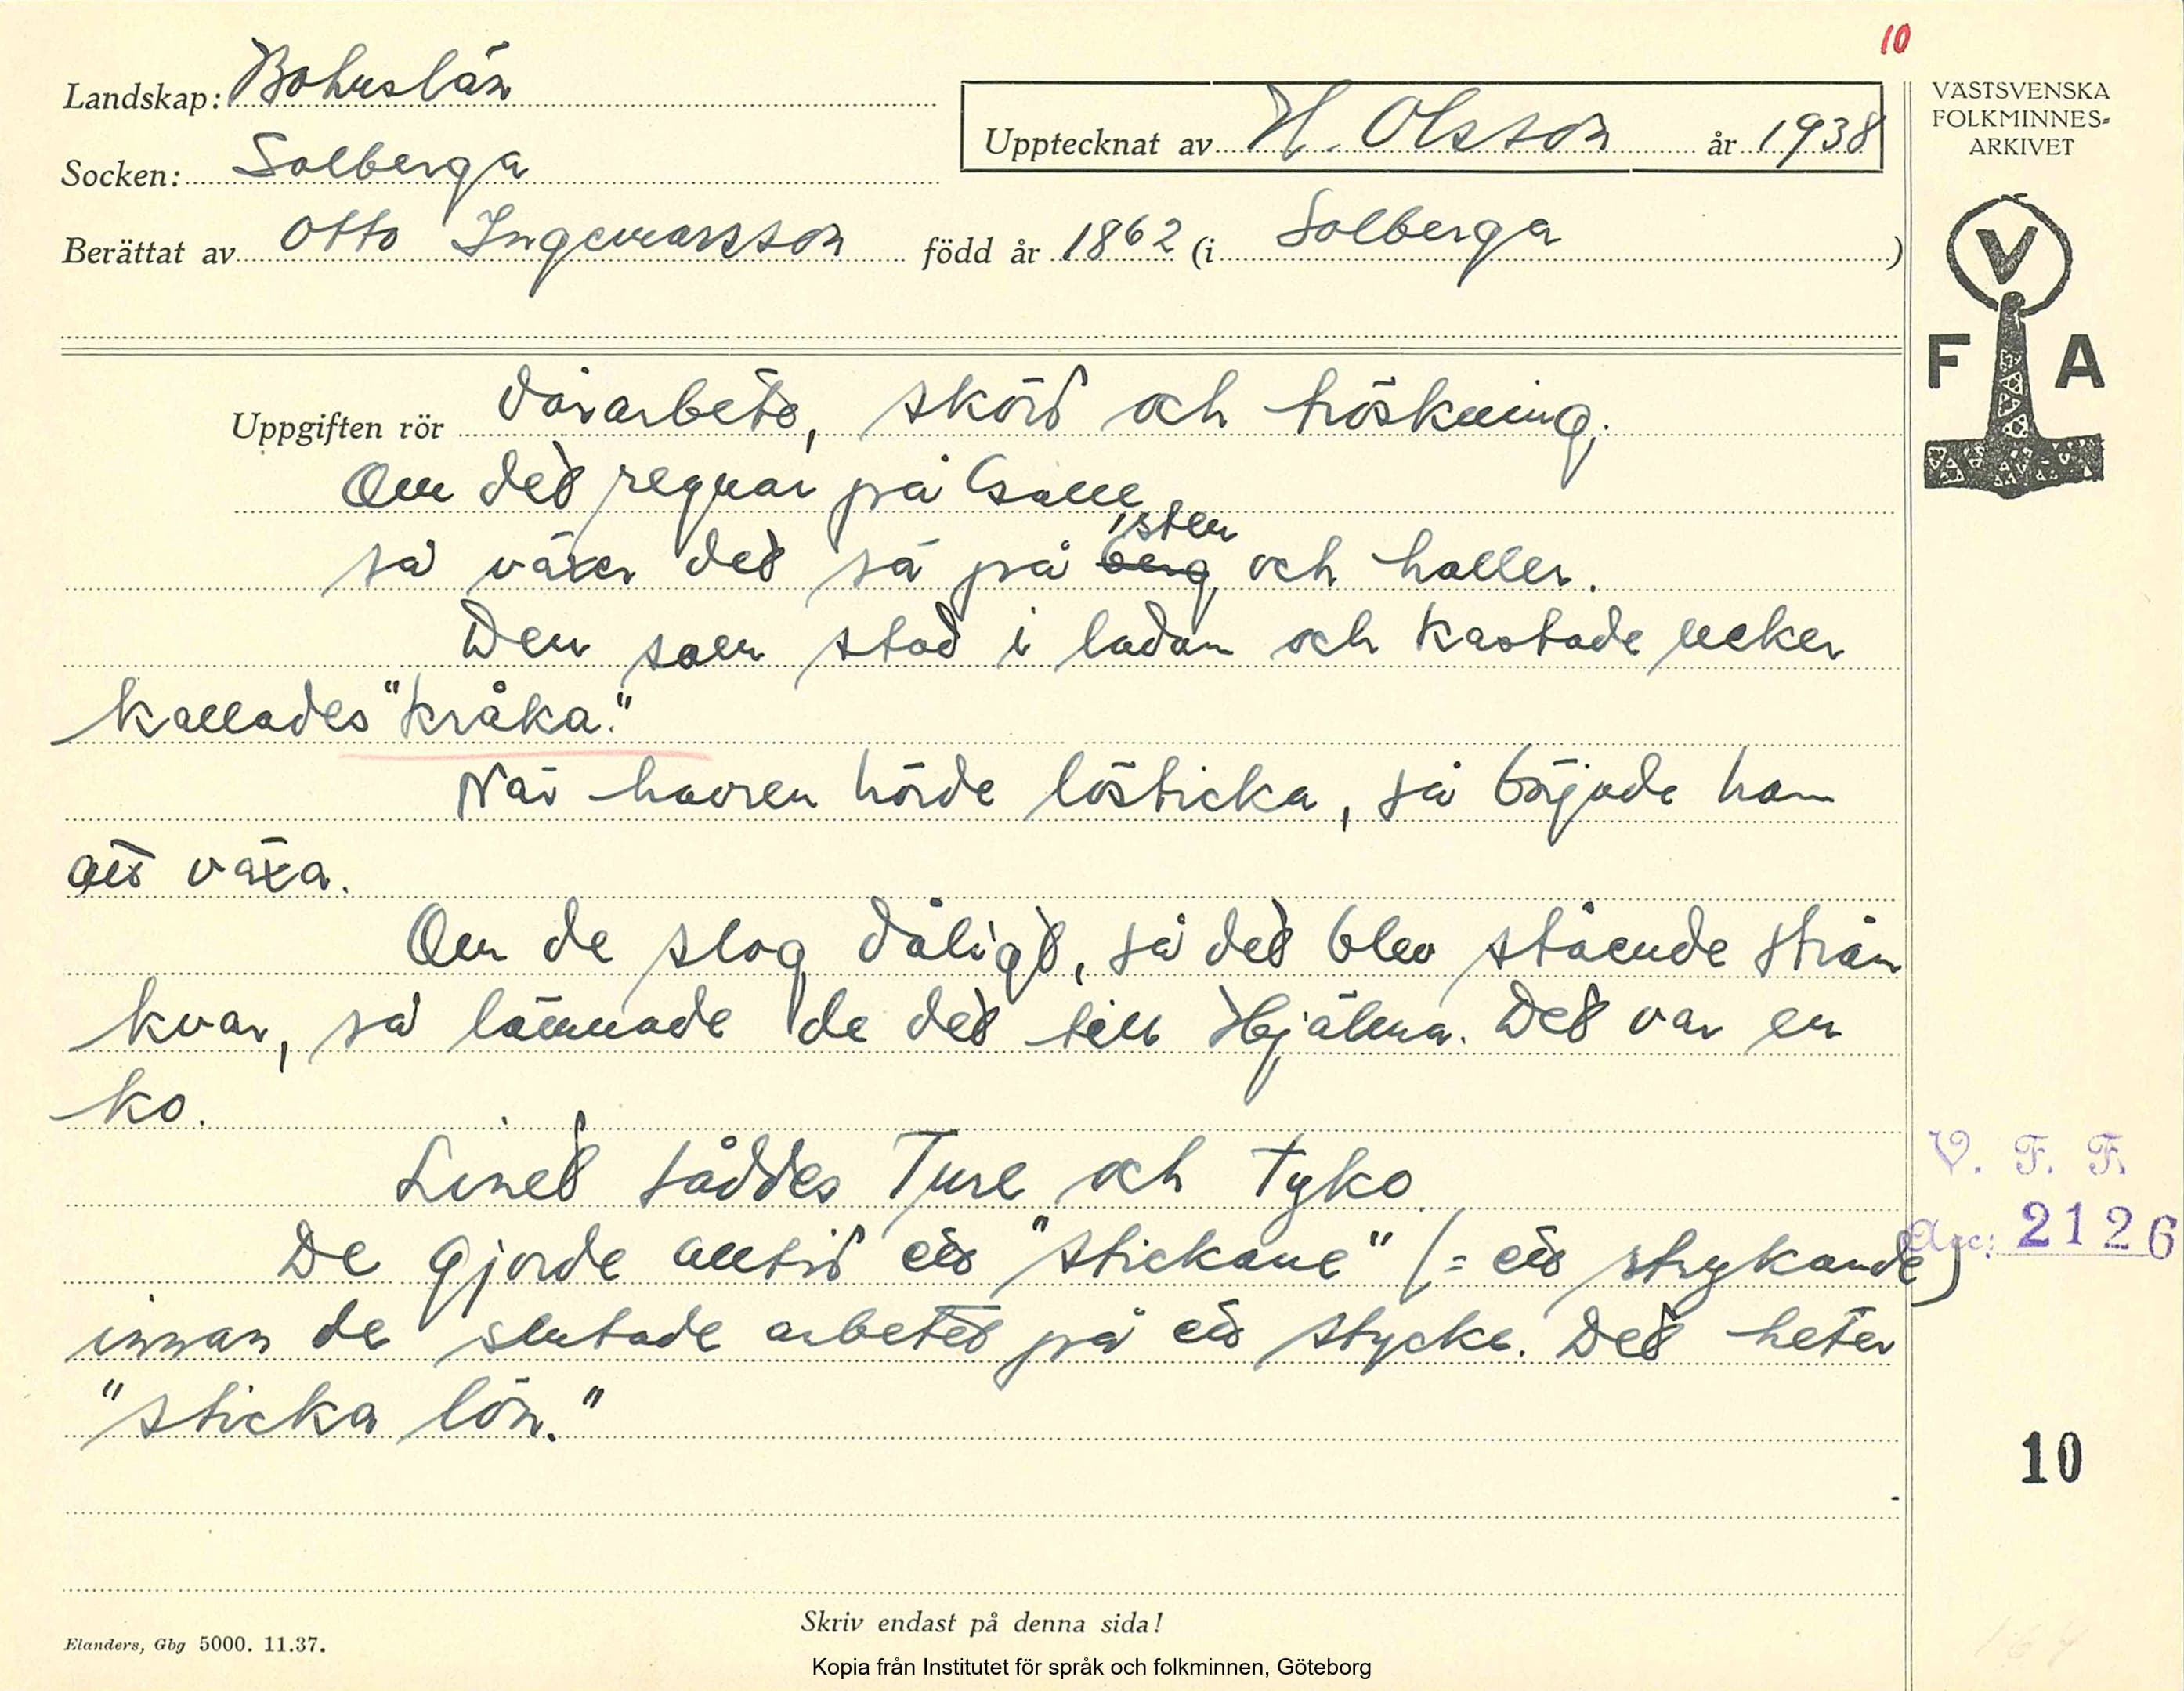 10
Landskap: Bohuslän
Socken: Solberga
Berättat av Otto Ingemarsson född år 1862 (i Solberga)
Upptecknat av H. Olsson år 1938
VÄSTSVENSKA
FOLKMINNES-
ARKIVET
V
F A
Uppgiften rör Vårarbete, skörd och tröskning.
Om det regnar på
så växer det så på berg och haller.
sten
Den som stod i ladan och kastade neker
kallades "kråka."
När havren hörde lösticka, så började han
att växa.
Om de slog dåligt, så det blev stående strån
kvar, så lämnade de det till Hjälma. Det var en
ko.
Linet såddes Ture och Tyko.
De gjorde alltid ett "stickane" (= ett strykande)
innan de slutade arbetet på ett stycke. Det heter
"sticka lön."
V. F. F.
Acc: 2126
10
Skriv endast på denna sida!
Elanders, Gbg 5000. 11.37.
Kopia från Institutet för språk och folkminnen, Göteborg